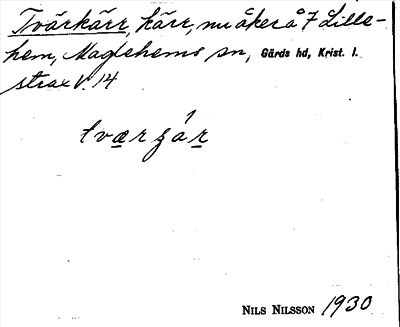 Tvärkärr, kärr, nu åker å 7 Lille-
hem, Maglehems sn, Gärds hd, Krist. l.
strax V. 14
tværɟár
NILS NILSSON 1930